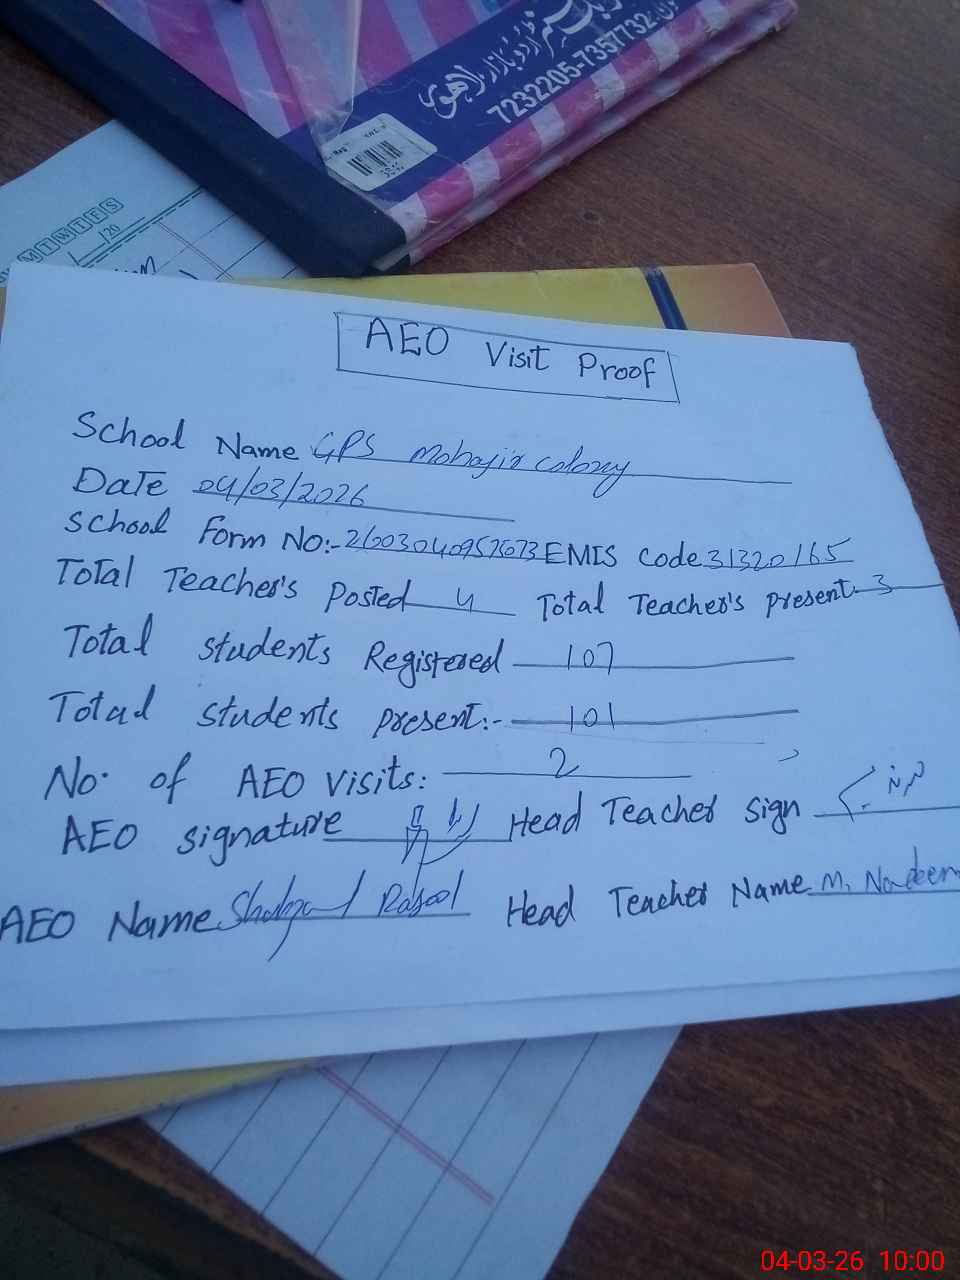 اردو بازار، لاہور
7232205-7357732
M T W T F S
20
AEO Visit Proof
School Name GPS Mohajir colony
Date 04/03/2026
School Form No:- EMIS Code 31320165
Total Teacher's Posted 4 Total Teacher's present. 3
Total students Registered 107
Total students present:- 101
No. of AEO visits: 2
AEO signature Head Teacher sign
AEO Name Rasool Head Teacher Name M. Nadeem
04-03-26 10:00